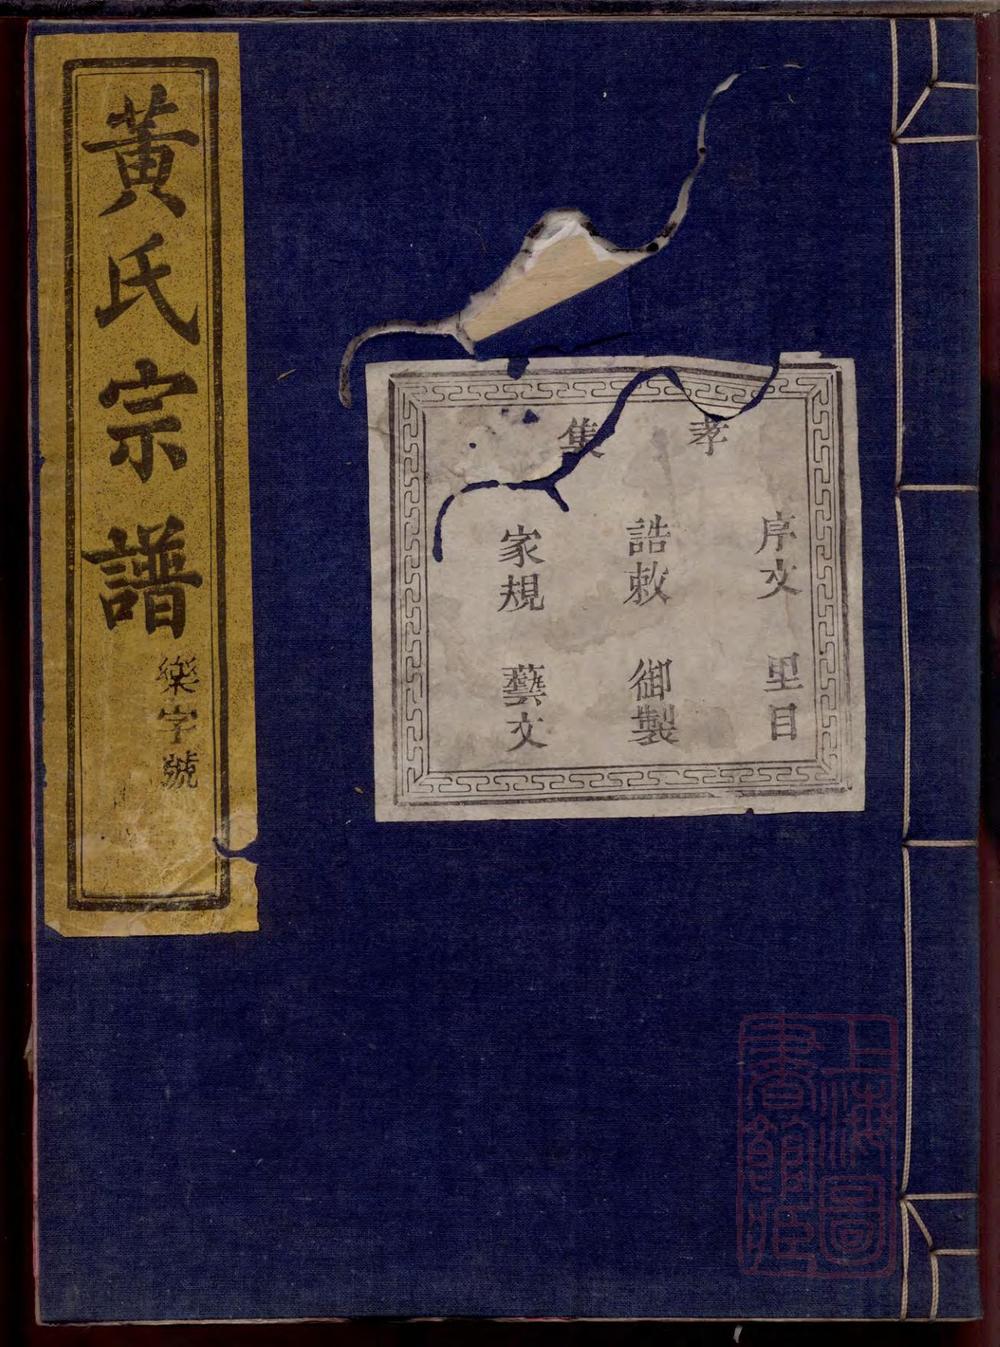 黃氏宗譜
樂字號
孝集
序文 里目
誥敕 御製
家規 藝文
上海圖
書館藏